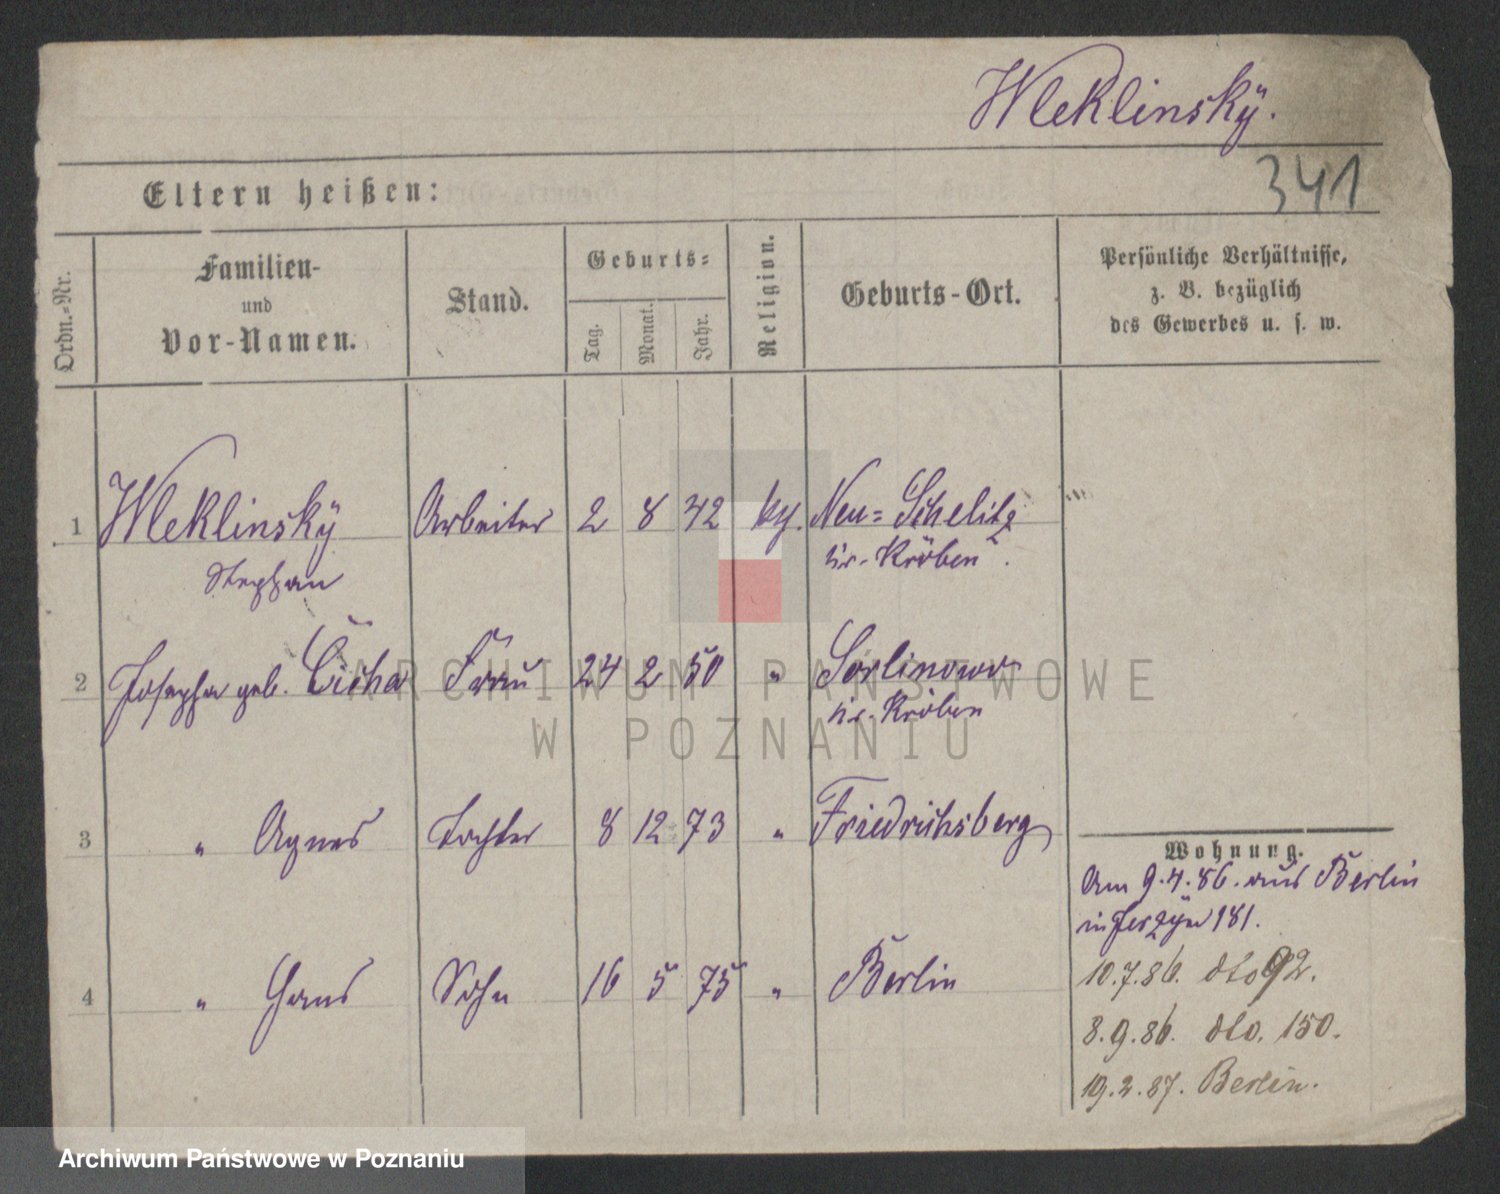 Wleklinskÿ.
341
Eltern heißen:
Ordn.-Nr.
Familien-
und
Vor-Namen.
Stand.
Geburts-
Tag.
Monat.
Jahr.
Religion.
Geburts-Ort.
Persönliche Verhältnisse,
z. B. bezüglich
des Gewerbes u. s. w.
1 Wleklinskÿ Arbeiter 2 8 42 Neu-Schelitz
Stephan Kr. Kröben.
2 Josepha geb. Cicha Frau 24 2 50 "
Kr. Kröben
3 " Agnes Tochter 8 12 73 " Friedrichsberg
4 " Hans Sohn 16 5 75 " Berlin
Wohnung.
Am 9.4.86. aus Berlin
in 181.
10.7.86. dto 92.
8.9.86. dto. 150.
19.2.87. Berlin.
ARCHIWUM PAŃSTWOWE
W POZNANIU
Archiwum Państwowe w Poznaniu